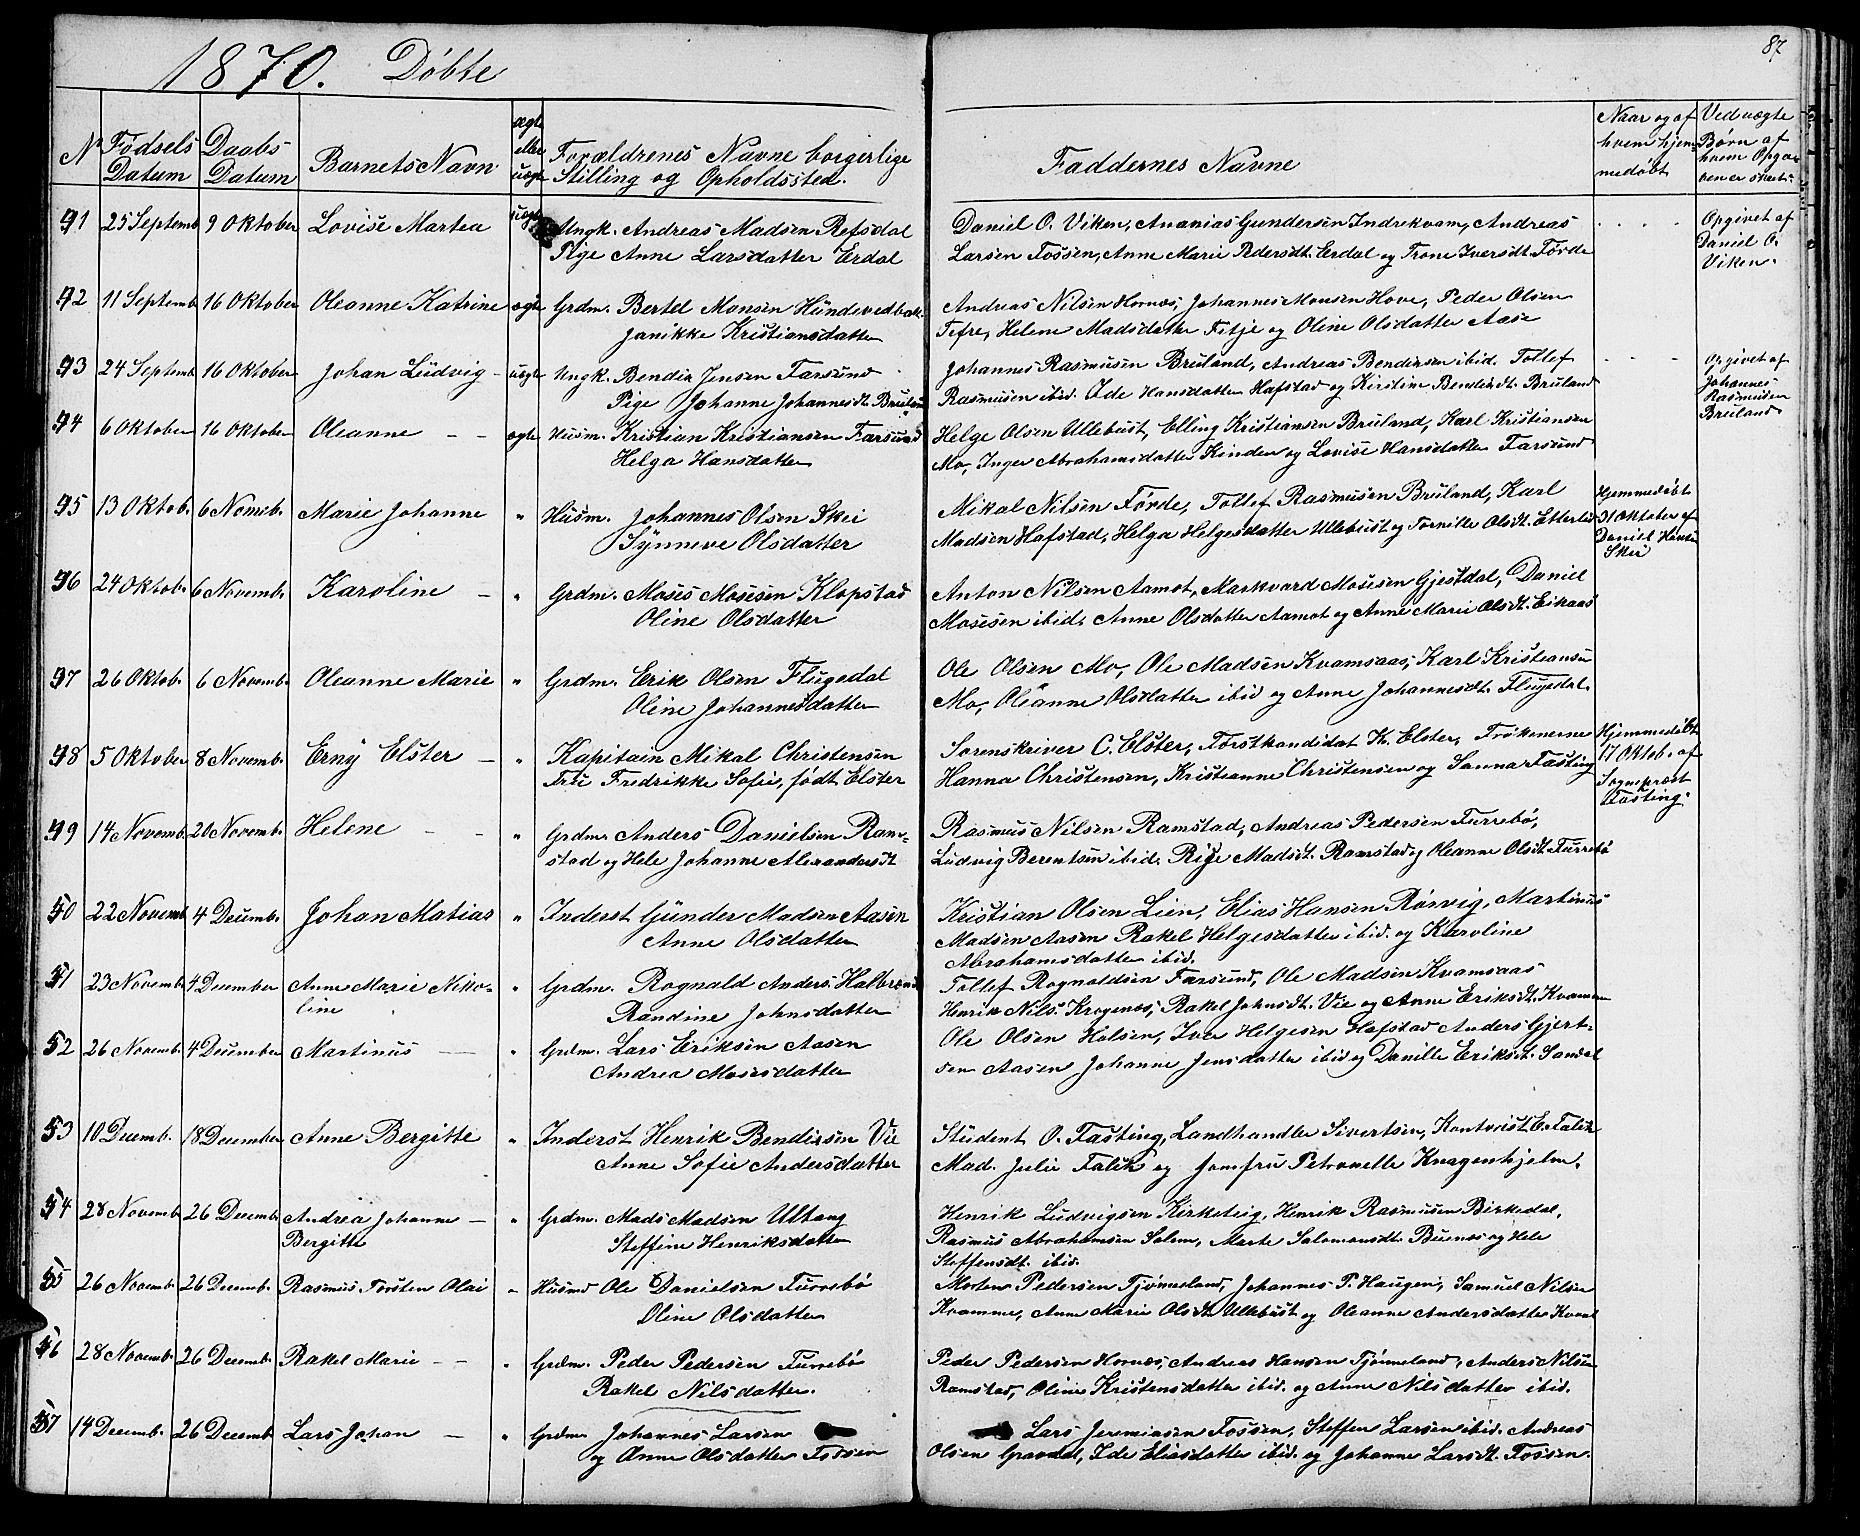 1870. Döbte
87
N
Fødsels Datum
Daabs Datum
Barnets Navn
ægte eller uægte
Forældrenes Navne borgerlige Stilling og Opholdssted.
Faddernes Navne
Naar og af hvem hjemmedöbt
Ved uægte Børn af hvem Opgaven er skeet.
91 25 Septemb 9 Oktober Lovise Martea uægte Ungk. Andreas Madsen Refsdal
Pige Anne Larsdatter Erdal
Daniel O. Viken, Ananias Gundersen Indrekvam, Andreas
Larsen Fossen, Anne Marie Pedersdt. Erdal og Trone Iversdt. Förde
Opgivet af
Daniel O.
Viken.
92 11 Septemb 16 Oktober Oleanne Katrine ægte Grdm. Bertel Monsen
Janikke Kristiansdatter
Andreas Nilsen Hornæs, Johannes Monsen Hove, Peder Olsen
Tefre, Helene Madsdatter Fitje og Oline Olsdatter Aase
93 24 Septemb 16 Oktober Johan Ludvig - uægte Ungk. Bendix Jensen Farsund
Pige Johanne Johannesdt. Bruland
Johannes Rasmusen Bruland, Andreas Bendixsen ibid. Tollef
Rasmusen ibid. Ide Hansdatter Hafstad og Kirstine Bendixdt. Bruland
Opgivet af
Johannes
Rasmusen
Bruland
94 6 Oktober 16 Oktober Oleanne - - ægte Husm. Kristian Kristiansen Farsund
Helga Hansdatter
Helge Olsen Ullebust, Elling Kristiansen Bruland, Karl Kristiansen
Mo, Inger Abrahamsdatter Kinden og Lovise Hansdatter Farsund
95 13 Oktob. 6 Novmb. Marie Johanne " Husm. Johannes Olsen Skei
Synneve Olsdatter
Mikal Nilsen Förde, Tollef Rasmusen Bruland, Karl
Madsen Hafstad, Helga Helgesdatter Ullebust og Tornille Olsdt. Etterlid
Hjemmedöbt
31 Oktober af
Daniel Hansen
Skei
96 24 Oktob. 6 Novemb. Karoline - " Grdm. Moses Mosesen Klopstad
Oline Olsdatter
Anton Nilsen Aamot, Markvard Mosesen Gjestdal, Daniel
Mosesen ibid. Anne Olsdatter Aamot og Anne Marie Olsdt. Eikaas
97 26 Oktob. 6 Novemb. Oleanne Marie " Grdm. Erik Olsen Flugedal
Oline Johannesdatter
Ole Olsen Mo, Ole Madsen Kvamsaas, Karl Kristiansen
Mo, Oleanne Olsdatter ibid og Anne Johannesdt. Flugedal.
98 5 Oktober 8 Novemb. Erny Elster - " Kapitain Mikal Christensen
Fru Fredrikke Sofie, födt Elster
Sorenskriver C. Elster, Forstkandidat K. Elster, Frökenerne
Hanna Christensen, Kristianne Christensen og Sanna Fasting
Hjemmedöbt
17 Oktob. af
Sognepræst
Fasting.
99 14 Novemb. 20 Novemb. Helene - - " Grdm. Anders Danielsen Ram-
stad og Hele Johanne Alexandersdt
Rasmus Nilsen Ramstad, Andreas Pedersen Furrebö,
Ludvig Berentsen ibid. Madsdt. Ramstad og Oleanne Olsdt. Furrebö
50 22 Novemb 4 Decemb. Johan Matias " Inderst Gunder Madsen Aasen
Anne Olsdatter
Kristian Olsen Lien, Elias Hansen Rørvig, Martinus
Madsen Aasen Rakel Helgesdatter ibid. og Karoline
Abrahamsdatter ibid.
51 23 Novemb 4 December Anne Marie Niko-
line " Grdm. Rognald Anders. Halbrend
Randine Johnsdatter
Tollef Rognaldsen Farsund, Ole Madsen Kvamsaas
Henrik Nils. Krogenæs, Rakel Johnsdt. Vie og Anne Eriksdt. Kvamen
52 26 Novemb. 4 December Martinus - " Grdm. Lars Eriksen Aasen
Andrea Mosesdatter
Ole Olsen Holsen, Iver Helgesen Hafstad Anders Gjert-
sen Aasen Johanne Jensdatter ibid og Danille Eriksdt. Sandal
53 10 Decemb. 18 December Anne Bergitte " Inderst Henrik Bendixsen Vie
Anne Sofie Andersdatter
Student O. Fasting, Landhandler Sivertsen, Kontorist E. Falck
Mad. Julie Falck og Jomfru Petronelle Knagenhjelm.
54 28 Novemb 26 Decemb. Andrea Johanne -
Bergitte " Grdm. Mads Madsen Ultang
Steffine Henriksdatter
Henrik Ludvigsen Kirketeig, Henrik Rasmusen Birkedal,
Rasmus Abrahamsen Solem, Marte Salomonsdt. Buenæs og Hele
Steffensdt. ibid.
55 26 Novemb. 26 Decemb. Rasmus Torsten Olai " Husmd Ole Danielsen Furrebö
Oline Olsdatter
Morten Pedersen Tjönneland, Johannes P. Haugen, Samuel Nilsen
Kvamme, Anne Marie Olsdt. Ullebust og Oleanne Andersdatter Kvaal
56 28 Novemb. 26 Decemb. Rakel Marie - - " Grdm. Peder Pedersen Furrebö
Rakel Nilsdatter.
Peder Pedersen Hornæs, Andreas Hansen Tjönneland, Anders Nilsen
Ramstad, Oline Kristensdatter ibid. og Anne Nilsdatter ibid.
57 14 Decemb. 26 Decemb Lars Johan - " Grdm Johannes Larsen
og Anne Olsdatter Fossen
Lars Jeremiasen Fossen, Steffen Larsen ibid. Andreas
Olsen Gravdal, Ide Eliasdatter ibid. og Johanne Larsdt. Fossen.